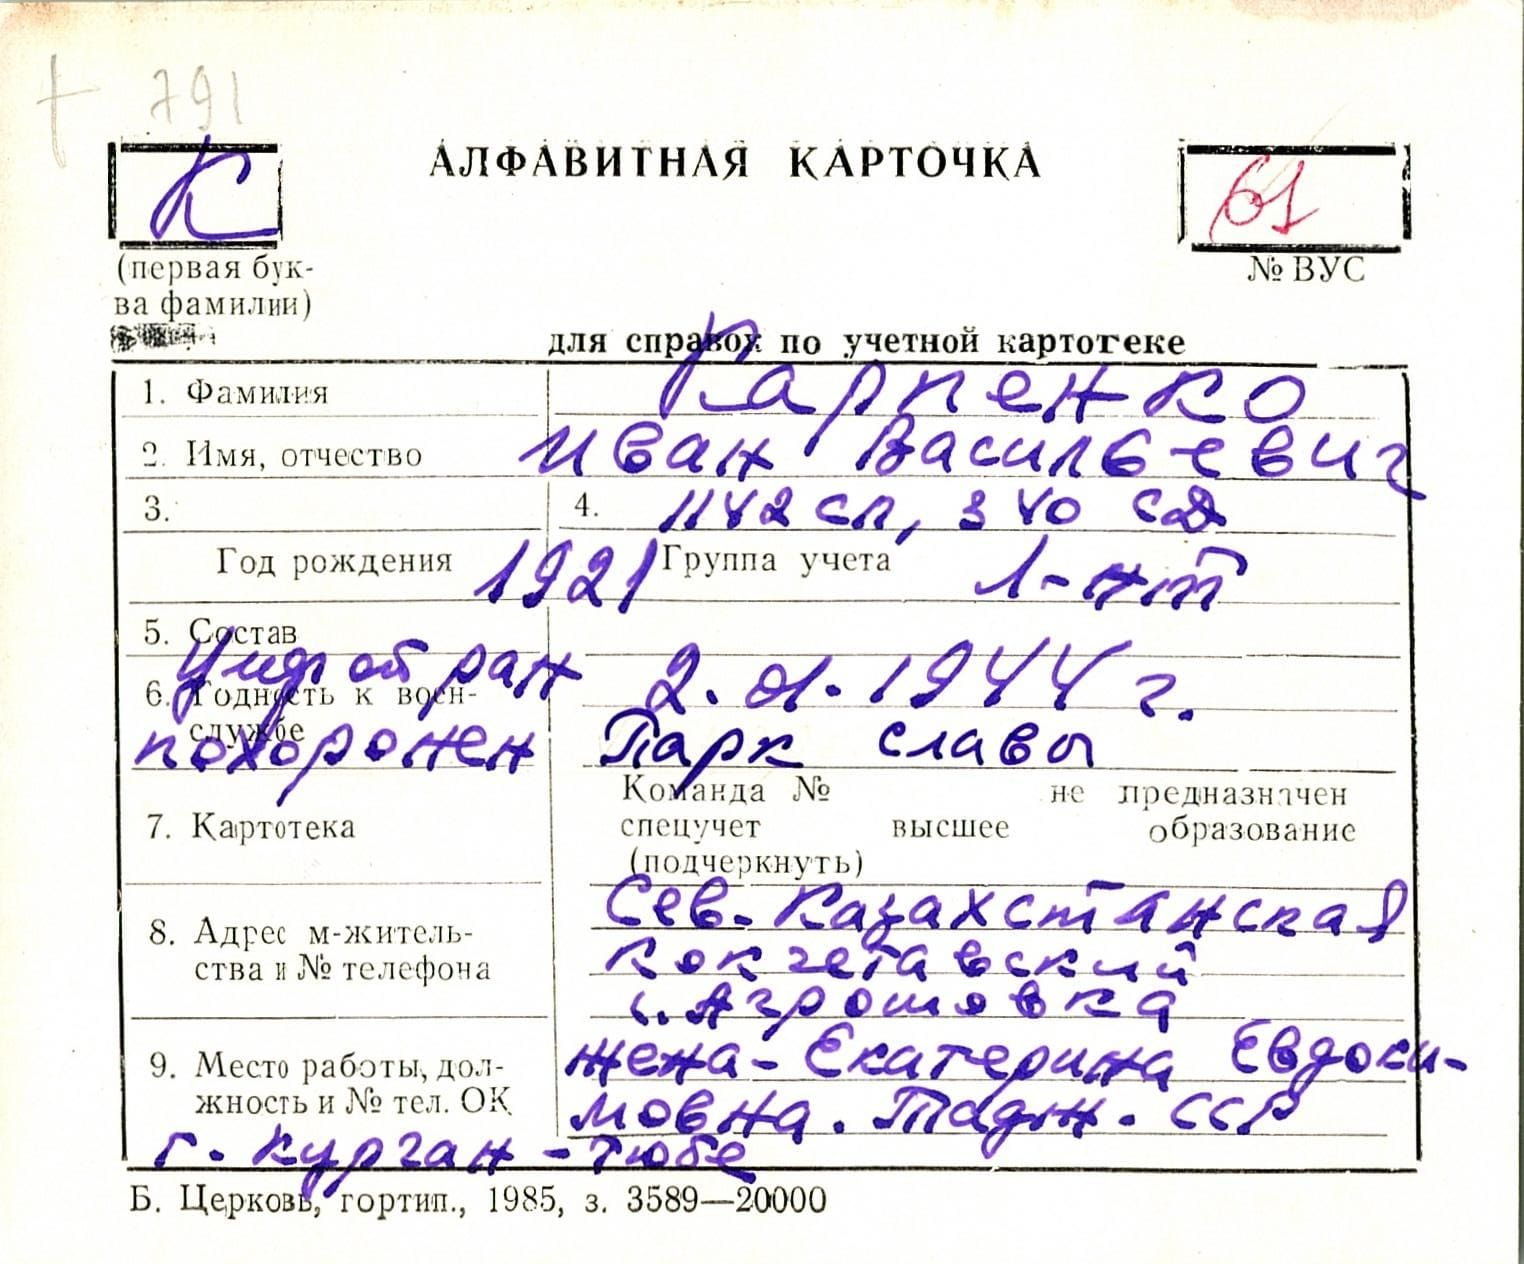 791
К
АЛФАВИТНАЯ КАРТОЧКА
61
(первая бук-
ва фамилии)
№ ВУС
для справок по учетной картотеке
1. Фамилия Карпенко
2. Имя, отчество Иван Васильевич
3. 4. 1142 сп, 340 СД
Год рождения 1921 Группа учета л-нт
5. Состав
6. Годность к воен- ран 2. 01. 1944 г.
службе
похоронен Парк славы
Команда № не предназначен
7. Картотека спецучет высшее образование
(подчеркнуть)
Сев-Казахстанская
8. Адрес м-житель- Кокчетавский
ства и № телефона с.
9. Место работы, дол- жена - Екатерина Евдоки-
жность и № тел. ОК мовна. Тадж. ССР
г. Курган-Тюбе
Б. Церковь, гортип., 1985, з. 3589—20000